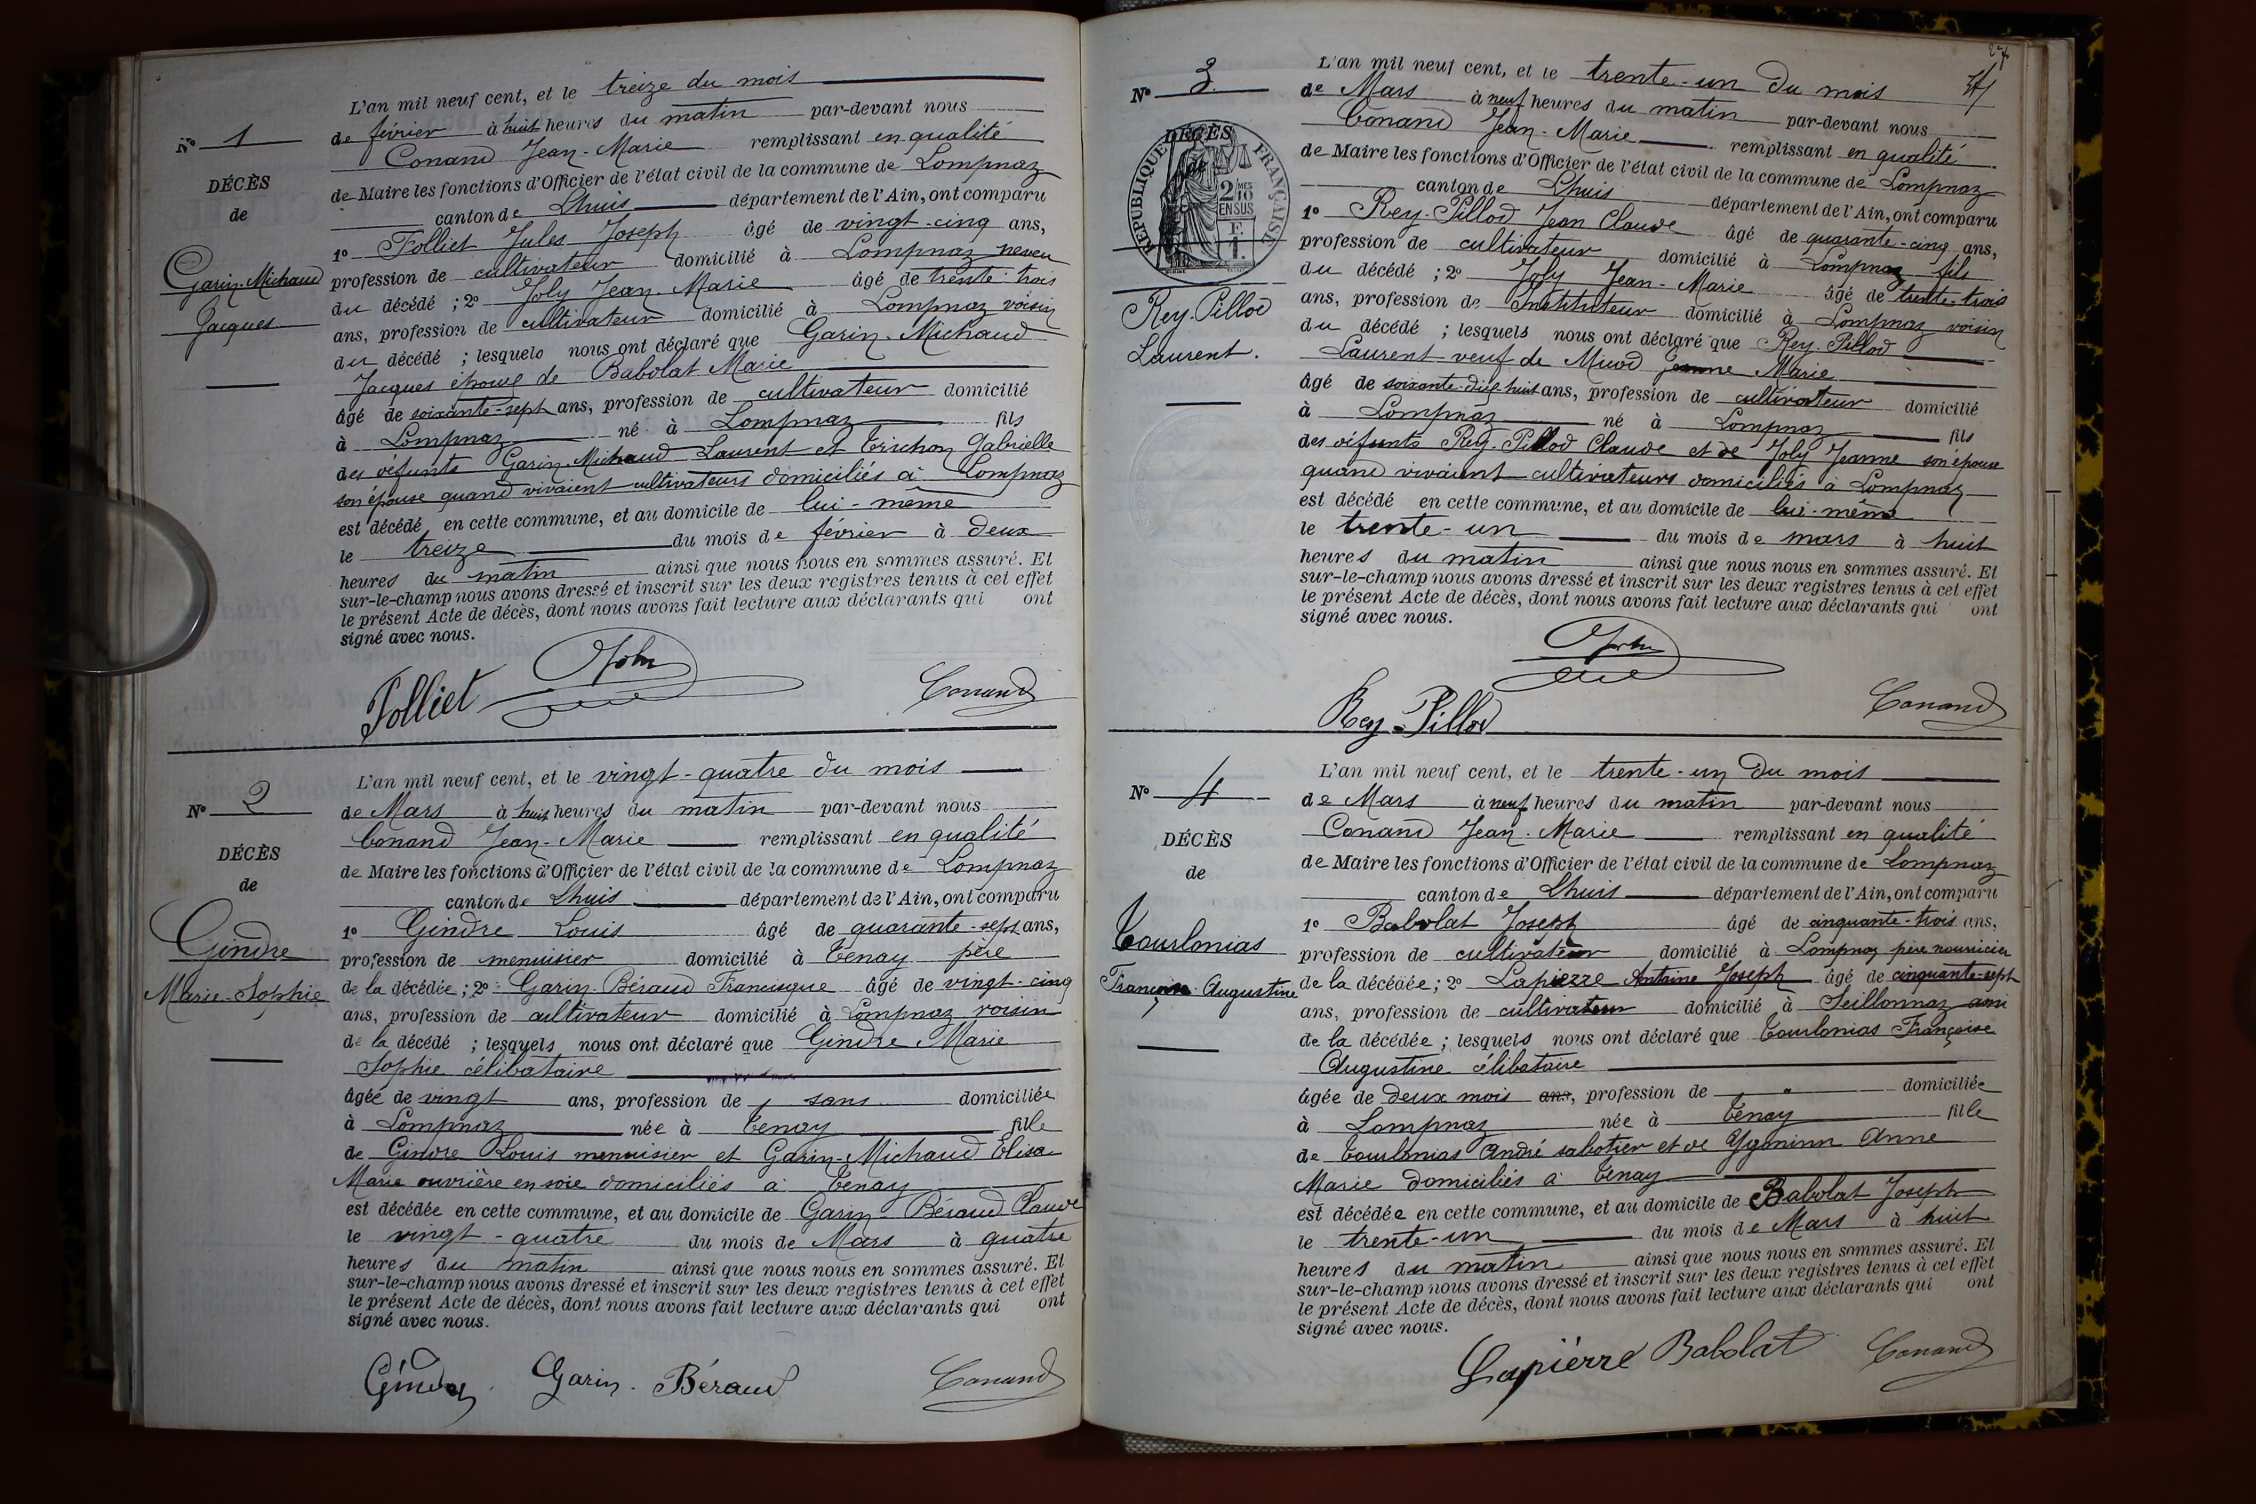 N° 1
DÉCÈS
de
Garin-Michaud
Jacques
L'an mil neuf cent, et le treize du mois
de février à huit heures du matin par-devant nous
Conand Jean-Marie remplissant en qualité
de Maire les fonctions d'Officier de l'état civil de la commune de Lompnaz
canton de Lhuis département de l'Ain, ont comparu
1° Folliet Jules Joseph âgé de vingt-cinq ans,
profession de cultivateur domicilié à Lompnaz neveu
du décédé ; 2° Joly Jean-Marie âgé de trente-trois
ans, profession de cultivateur domicilié à Lompnaz voisin
du décédé ; lesquels nous ont déclaré que Garin-Michaud
Jacques époux de Babolat Marie
âgé de soixante-sept ans, profession de cultivateur domicilié
à Lompnaz né à Lompnaz fils
des défunts Garin-Michaud Laurent et Trichon Gabrielle
son épouse quand vivaient cultivateurs domiciliés à Lompnaz
est décédé en cette commune, et au domicile de lui-même
le treize du mois de février à deux
heures du matin ainsi que nous nous en sommes assuré. Et
sur-le-champ nous avons dressé et inscrit sur les deux registres tenus à cet effet
le présent Acte de décès, dont nous avons fait lecture aux déclarants qui ont
signé avec nous.
Folliet Joly Conand
N° 2
DÉCÈS
de
Gindre
Marie-Sophie
L'an mil neuf cent, et le vingt-quatre du mois
de Mars à huit heures du matin par-devant nous
Conand Jean-Marie remplissant en qualité
de Maire les fonctions d'Officier de l'état civil de la commune de Lompnaz
canton de Lhuis département de l'Ain, ont comparu
1° Gindre Louis âgé de quarante-sept ans,
profession de menuisier domicilié à Tenay père
de la décédée ; 2° Garin-Béraud Francisque âgé de vingt-cinq
ans, profession de cultivateur domicilié à Lompnaz voisin
de la décédé ; lesquels nous ont déclaré que Gindre Marie
Sophie célibataire
âgée de vingt ans, profession de sans domiciliée
à Lompnaz née à Tenay fille
de Gindre Louis menuisier et Garin-Michaud Elisa
Marie ouvrière en soie domiciliés à Tenay
est décédée en cette commune, et au domicile de Garin-Béraud Claude
le vingt-quatre du mois de Mars à quatre
heures du matin ainsi que nous nous en sommes assuré. Et
sur-le-champ nous avons dressé et inscrit sur les deux registres tenus à cet effet
le présent Acte de décès, dont nous avons fait lecture aux déclarants qui ont
signé avec nous.
Gindre Garin-Béraud Conand
N° 3
DÉCÈS
RÉPUBLIQUE FRANÇAISE
2 MES 10
EN SUS
Rey-Pillod
Laurent.
L'an mil neuf cent, et le trente-un du mois
de Mars à neuf heures du matin par-devant nous
Conand Jean-Marie remplissant en qualité
de Maire les fonctions d'Officier de l'état civil de la commune de Lompnaz
canton de Lhuis département de l'Ain, ont comparu
1° Rey-Pillod Jean Claude âgé de quarante-cinq ans,
profession de cultivateur domicilié à Lompnaz fils
du décédé ; 2° Joly Jean-Marie âgé de trente-trois
ans, profession de Instituteur domicilié à Lompnaz voisin
du décédé ; lesquels nous ont déclaré que Rey-Pillod
Laurent veuf de Micod Jeanne Marie
âgé de soixante-dix-huit ans, profession de cultivateur domicilié
à Lompnaz né à Lompnaz fils
des défunts Rey-Pillod Claude et de Joly Jeanne son épouse
quand vivaient cultivateurs domiciliés à Lompnaz
est décédé en cette commune, et au domicile de lui-même
le trente-un du mois de mars à huit
heures du matin ainsi que nous nous en sommes assuré. Et
sur-le-champ nous avons dressé et inscrit sur les deux registres tenus à cet effet
le présent Acte de décès, dont nous avons fait lecture aux déclarants qui ont
signé avec nous.
Rey-Pillod Joly Conand
N° 4
DÉCÈS
de
Tourlonias
Françoise Augustine
L'an mil neuf cent, et le trente-un du mois
de Mars à neuf heures du matin par-devant nous
Conand Jean-Marie remplissant en qualité
de Maire les fonctions d'Officier de l'état civil de la commune de Lompnaz
canton de Lhuis département de l'Ain, ont comparu
1° Babolat Joseph âgé de cinquante-trois ans,
profession de cultivateur domicilié à Lompnaz père nourricier
de la décédée ; 2° Lapierre Antoine Joseph âgé de cinquante-sept
ans, profession de cultivateur domicilié à Seillonnaz ami
de la décédée ; lesquels nous ont déclaré que Tourlonias Françoise
Augustine célibataire
âgée de deux mois ans, profession de " domiciliée
à Lompnaz née à Tenay fille
de Tourlonias André sabotier et de Ygoninn Anne
Marie domiciliés à Tenay
est décédée en cette commune, et au domicile de Babolat Joseph
le trente-un du mois de Mars à huit
heures du matin ainsi que nous nous en sommes assuré. Et
sur-le-champ nous avons dressé et inscrit sur les deux registres tenus à cet effet
le présent Acte de décès, dont nous avons fait lecture aux déclarants qui ont
signé avec nous.
Lapiérre Babolat Conand